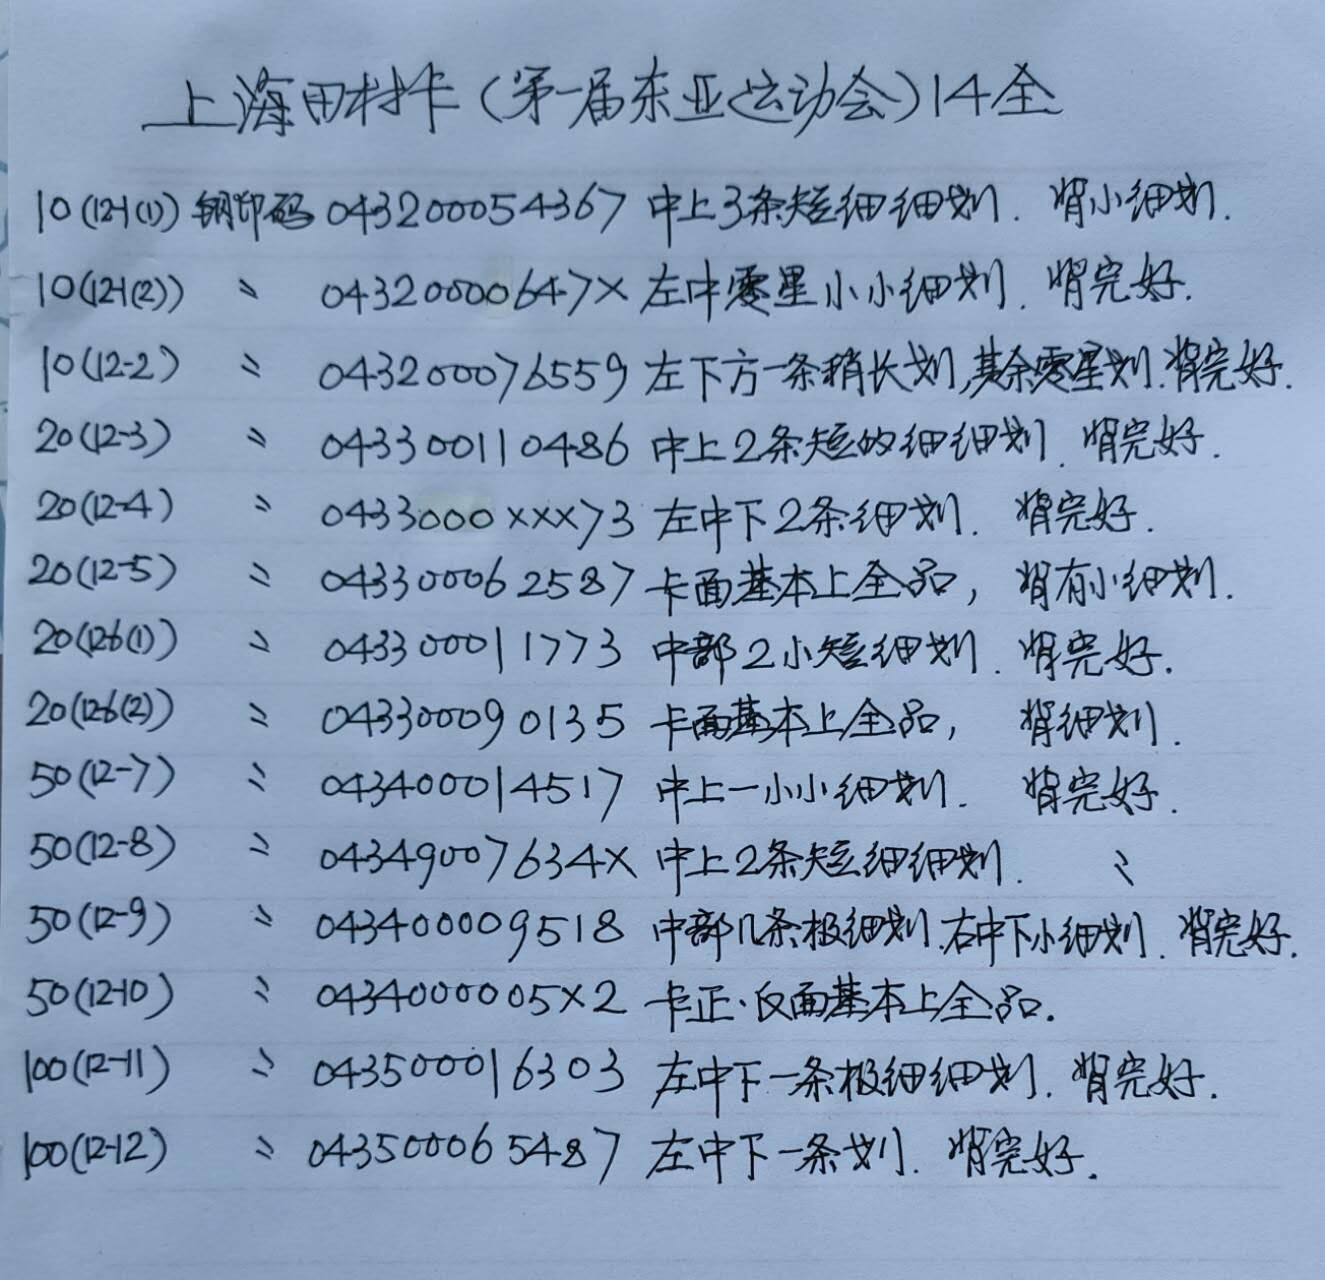 上海田村卡(第一届东亚运动会)14全
10(12-1(1)) 钢印码 043200054367 中上3条短细细划. 背小细划.
10(12-1(2)) 〃 04320000647X 左中零星小小细划. 背完好.
10(12-2) 〃 043200076559 左下方一条稍长划,其余零星划.背完好.
20(12-3) 〃 043300110486 中上2条短的细细划. 背完好.
20(12-4) 〃 0433000XXX73 左中下2条细划. 背完好.
20(12-5) 〃 043300062587 卡面基本上全品, 背有小细划.
20(12-6(1)) 〃 043300011773 中部2小短细划. 背完好.
20(12-6(2)) 〃 043300090135 卡面基本上全品, 背细划.
50(12-7) 〃 043400014517 中上一小小细划. 背完好.
50(12-8) 〃 04349007634X 中上2条短细细划. 〃
50(12-9) 〃 043400009518 中部几条极细划.右中下小细划. 背完好.
50(12-10) 〃 0434000005X2 卡正.反面基本上全品.
100(12-11) 〃 043500016303 左中下一条极细细划. 背完好.
100(12-12) 〃 043500065487 左中下一条划. 背完好.